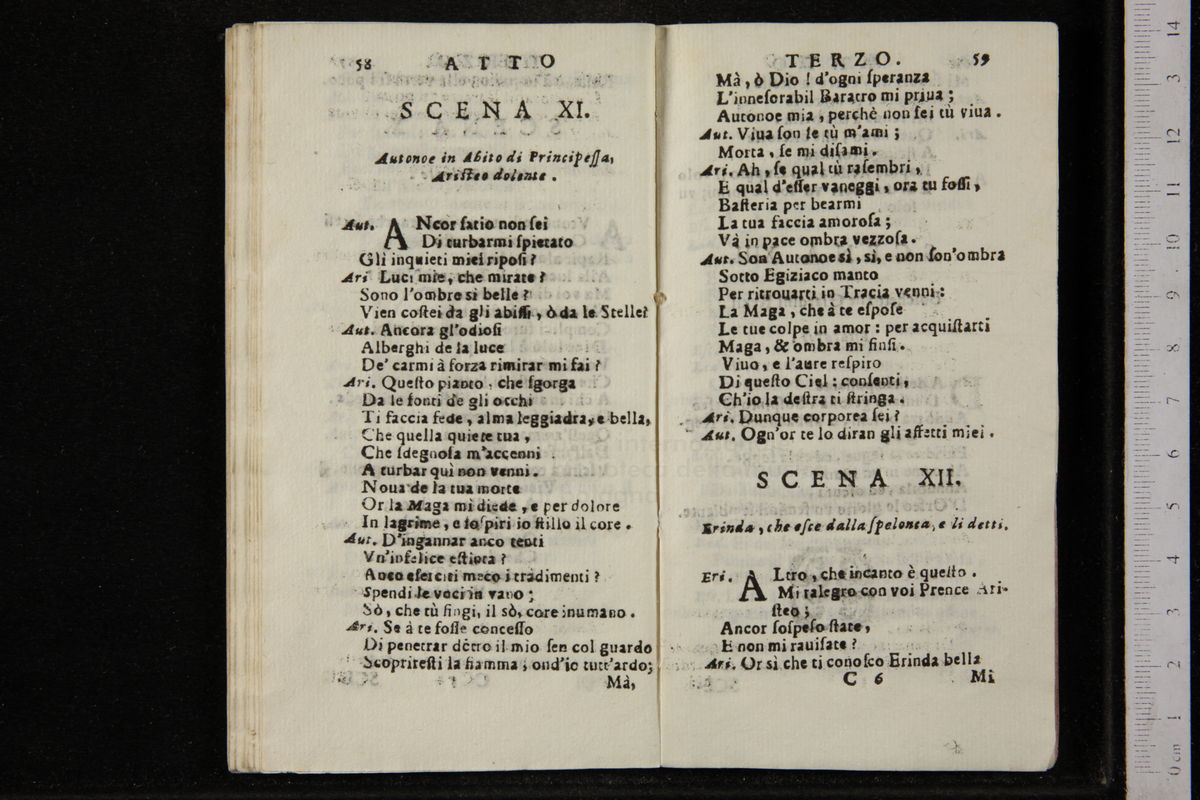 58 ATTO
SCENA XI.
Autonoe in Abito di Principeſſa,
Ariſteo dolente.
Aut. ANcor ſatio non ſei
Di turbarmi ſpietato
Gli inquieti miei ripoſi?
Ari Luci mie, che mirate?
Sono l'ombre sì belle?
Vien coſtei da gli abiſſi, ò da le Stelle?
Aut. Ancora gl'odioſi
Alberghi de la luce
De' carmi à forza rimirar mi fai?
Ari. Queſto pianto, che ſgorga
Da le fonti de gli occhi
Ti faccia fede, alma leggiadra, e bella,
Che quella quiete tua,
Che ſdegnoſa m'accenni
A turbar quì non venni.
Noua de la tua morte
Or la Maga mi diede, e per dolore
In lagrime, e ſoſpiri io ſtillo il core.
Aut. D'ingannar anco tenti
Vn'infelice eſtinta?
Anco eſerciti meco i tradimenti?
Spendi le voci in vano;
Sò, che tù fingi, il sò, core inumano.
Ari. Se à te foſſe conceſſo
Di penetrar dẽtro il mio ſen col guardo
Scopriresti la fiamma, ond'io tutt'ardo;
Mà,
TERZO. 59
Mà, ò Dio! d'ogni ſperanza
L'inneſorabil Baratro mi priua;
Autonoe mia, perchè non ſei tù viua.
Aut. Viua ſon ſe tù m'ami;
Morta, ſe mi diſami.
Ari. Ah, ſe qual tù raſembri,
E qual d'eſſer vaneggi, ora tu foſſi,
Baſteria per bearmi
La tua faccia amoroſa;
Và in pace ombra vezzoſa.
Aut. Son Autonoe sì, sì, e non ſon'ombra
Sotto Egiziaco manto
Per ritrouarti in Tracia venni:
La Maga, che à te eſpoſe
Le tue colpe in amor: per acquiſtarti
Maga, & ombra mi finſi.
Viuo, e l'aure reſpiro
Di queſto Ciel: conſenti,
Ch'io la deſtra ti ſtringa.
Ari. Dunque corporea ſei?
Aut. Ogn'or te lo diran gli affetti miei.
SCENA XII.
Erinda, che eſce dalla ſpelonca, e li detti.
Eri. ALtro, che incanto è queſto.
Mi ralegro con voi Prence Ari-
ſteo;
Ancor ſoſpeſo ſtate,
E non mi rauiſate?
Ari. Or sì che ti conoſco Erinda bella
C 6 Mi